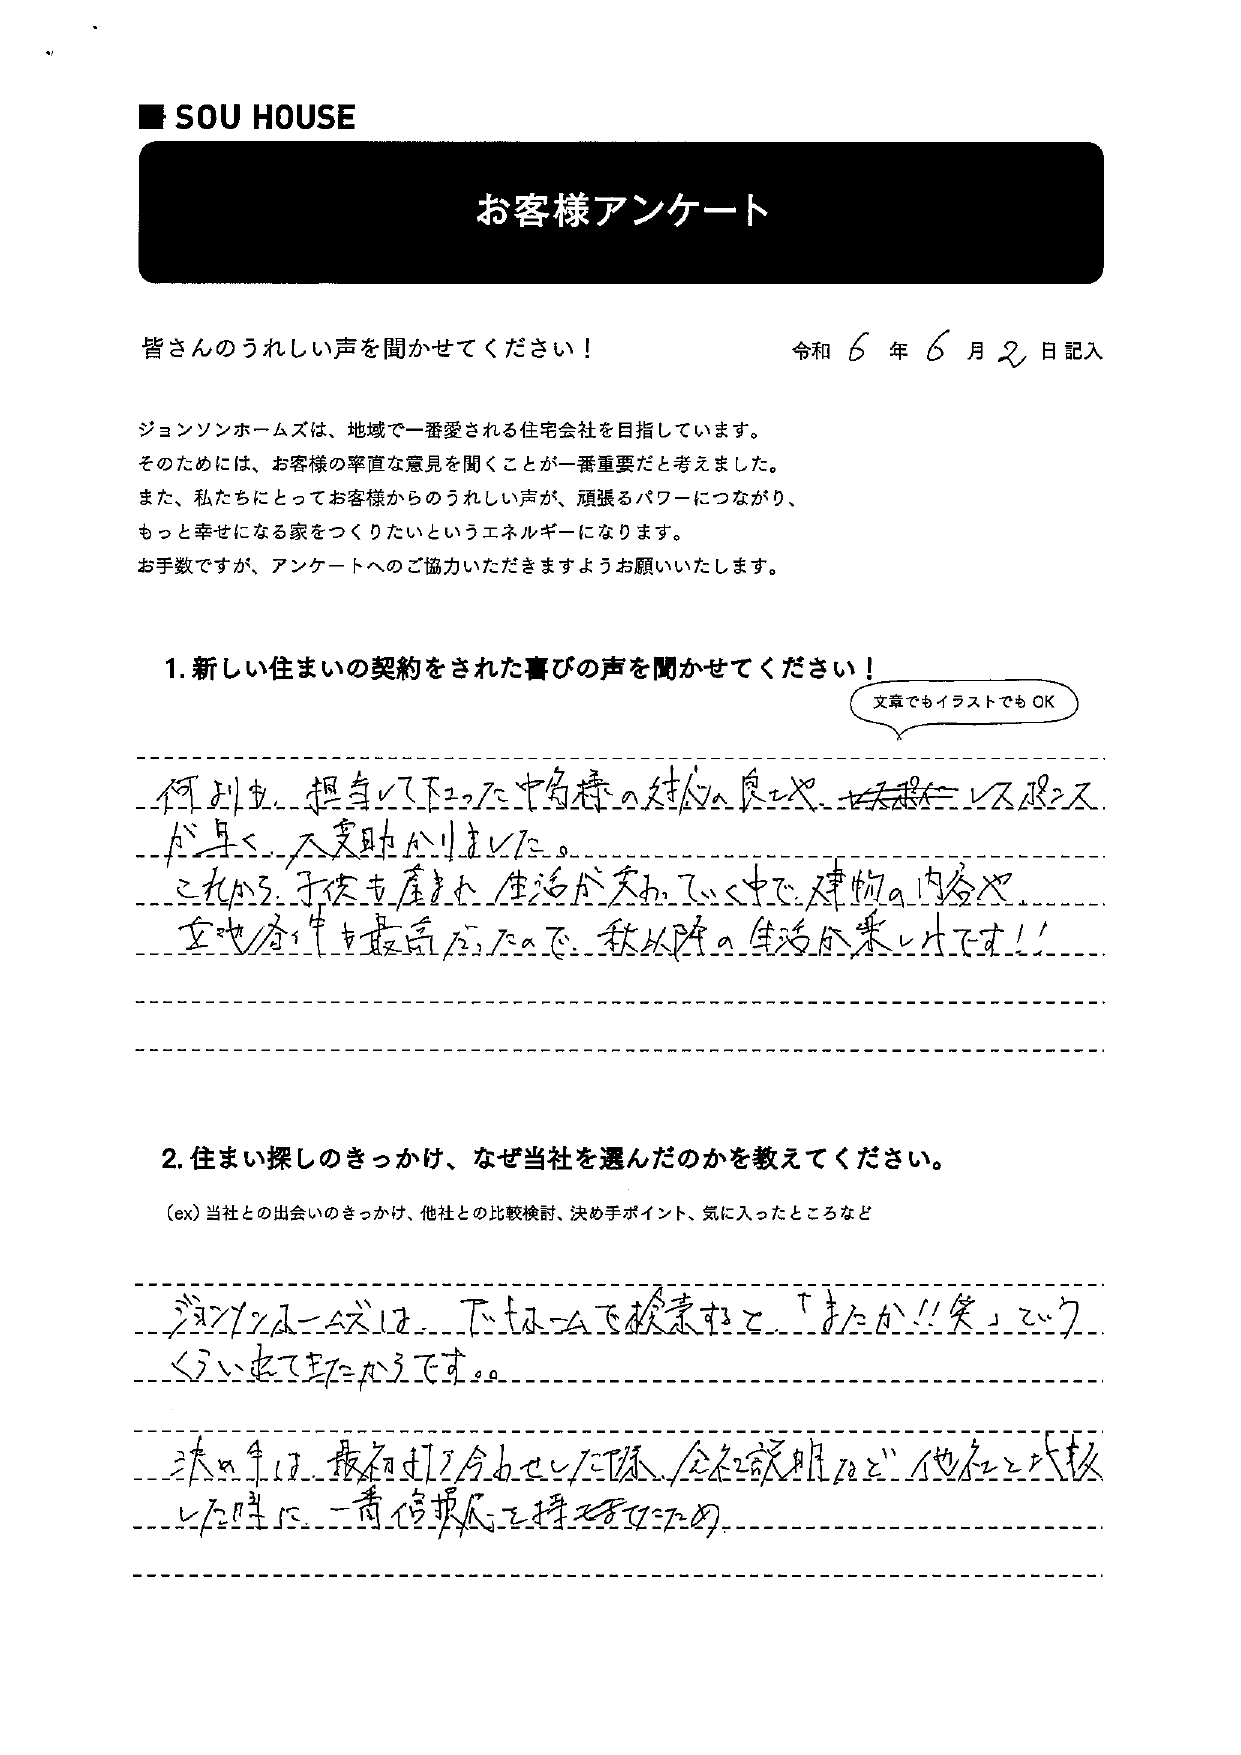 SOU HOUSE
お客様アンケート
皆さんのうれしい声を聞かせてください！
令和 6 年 6 月 2 日 記入
ジョンソンホームズは、地域で一番愛される住宅会社を目指しています。
そのためには、お客様の率直な意見を聞くことが一番重要だと考えました。
また、私たちにとってお客様からのうれしい声が、頑張るパワーにつながり、
もっと幸せになる家をつくりたいというエネルギーになります。
お手数ですが、アンケートへのご協力いただきますようお願いいたします。
1. 新しい住まいの契約をされた喜びの声を聞かせてください！
文章でもイラストでも OK
何よりも、担当して下さった中角様の対応の良さや、レスポンス
が早く、大変助かりました。
これから、子供も産まれ生活が変わっていく中で、建物の内容や
立地条件も最高だったので、秋以降の生活が楽しみです!!
2. 住まい探しのきっかけ、なぜ当社を選んだのかを教えてください。
（ex）当社との出会いのきっかけ、他社との比較検討、決め手ポイント、気に入ったところなど
ジョンソンホームズは、アットホームで検索すると、「またか!!笑」っていう
くらい出てきたからです。。
決め手は、最初打ち合わせした際、会社説明など他社と比較
した時に、一番信頼感を持てたため